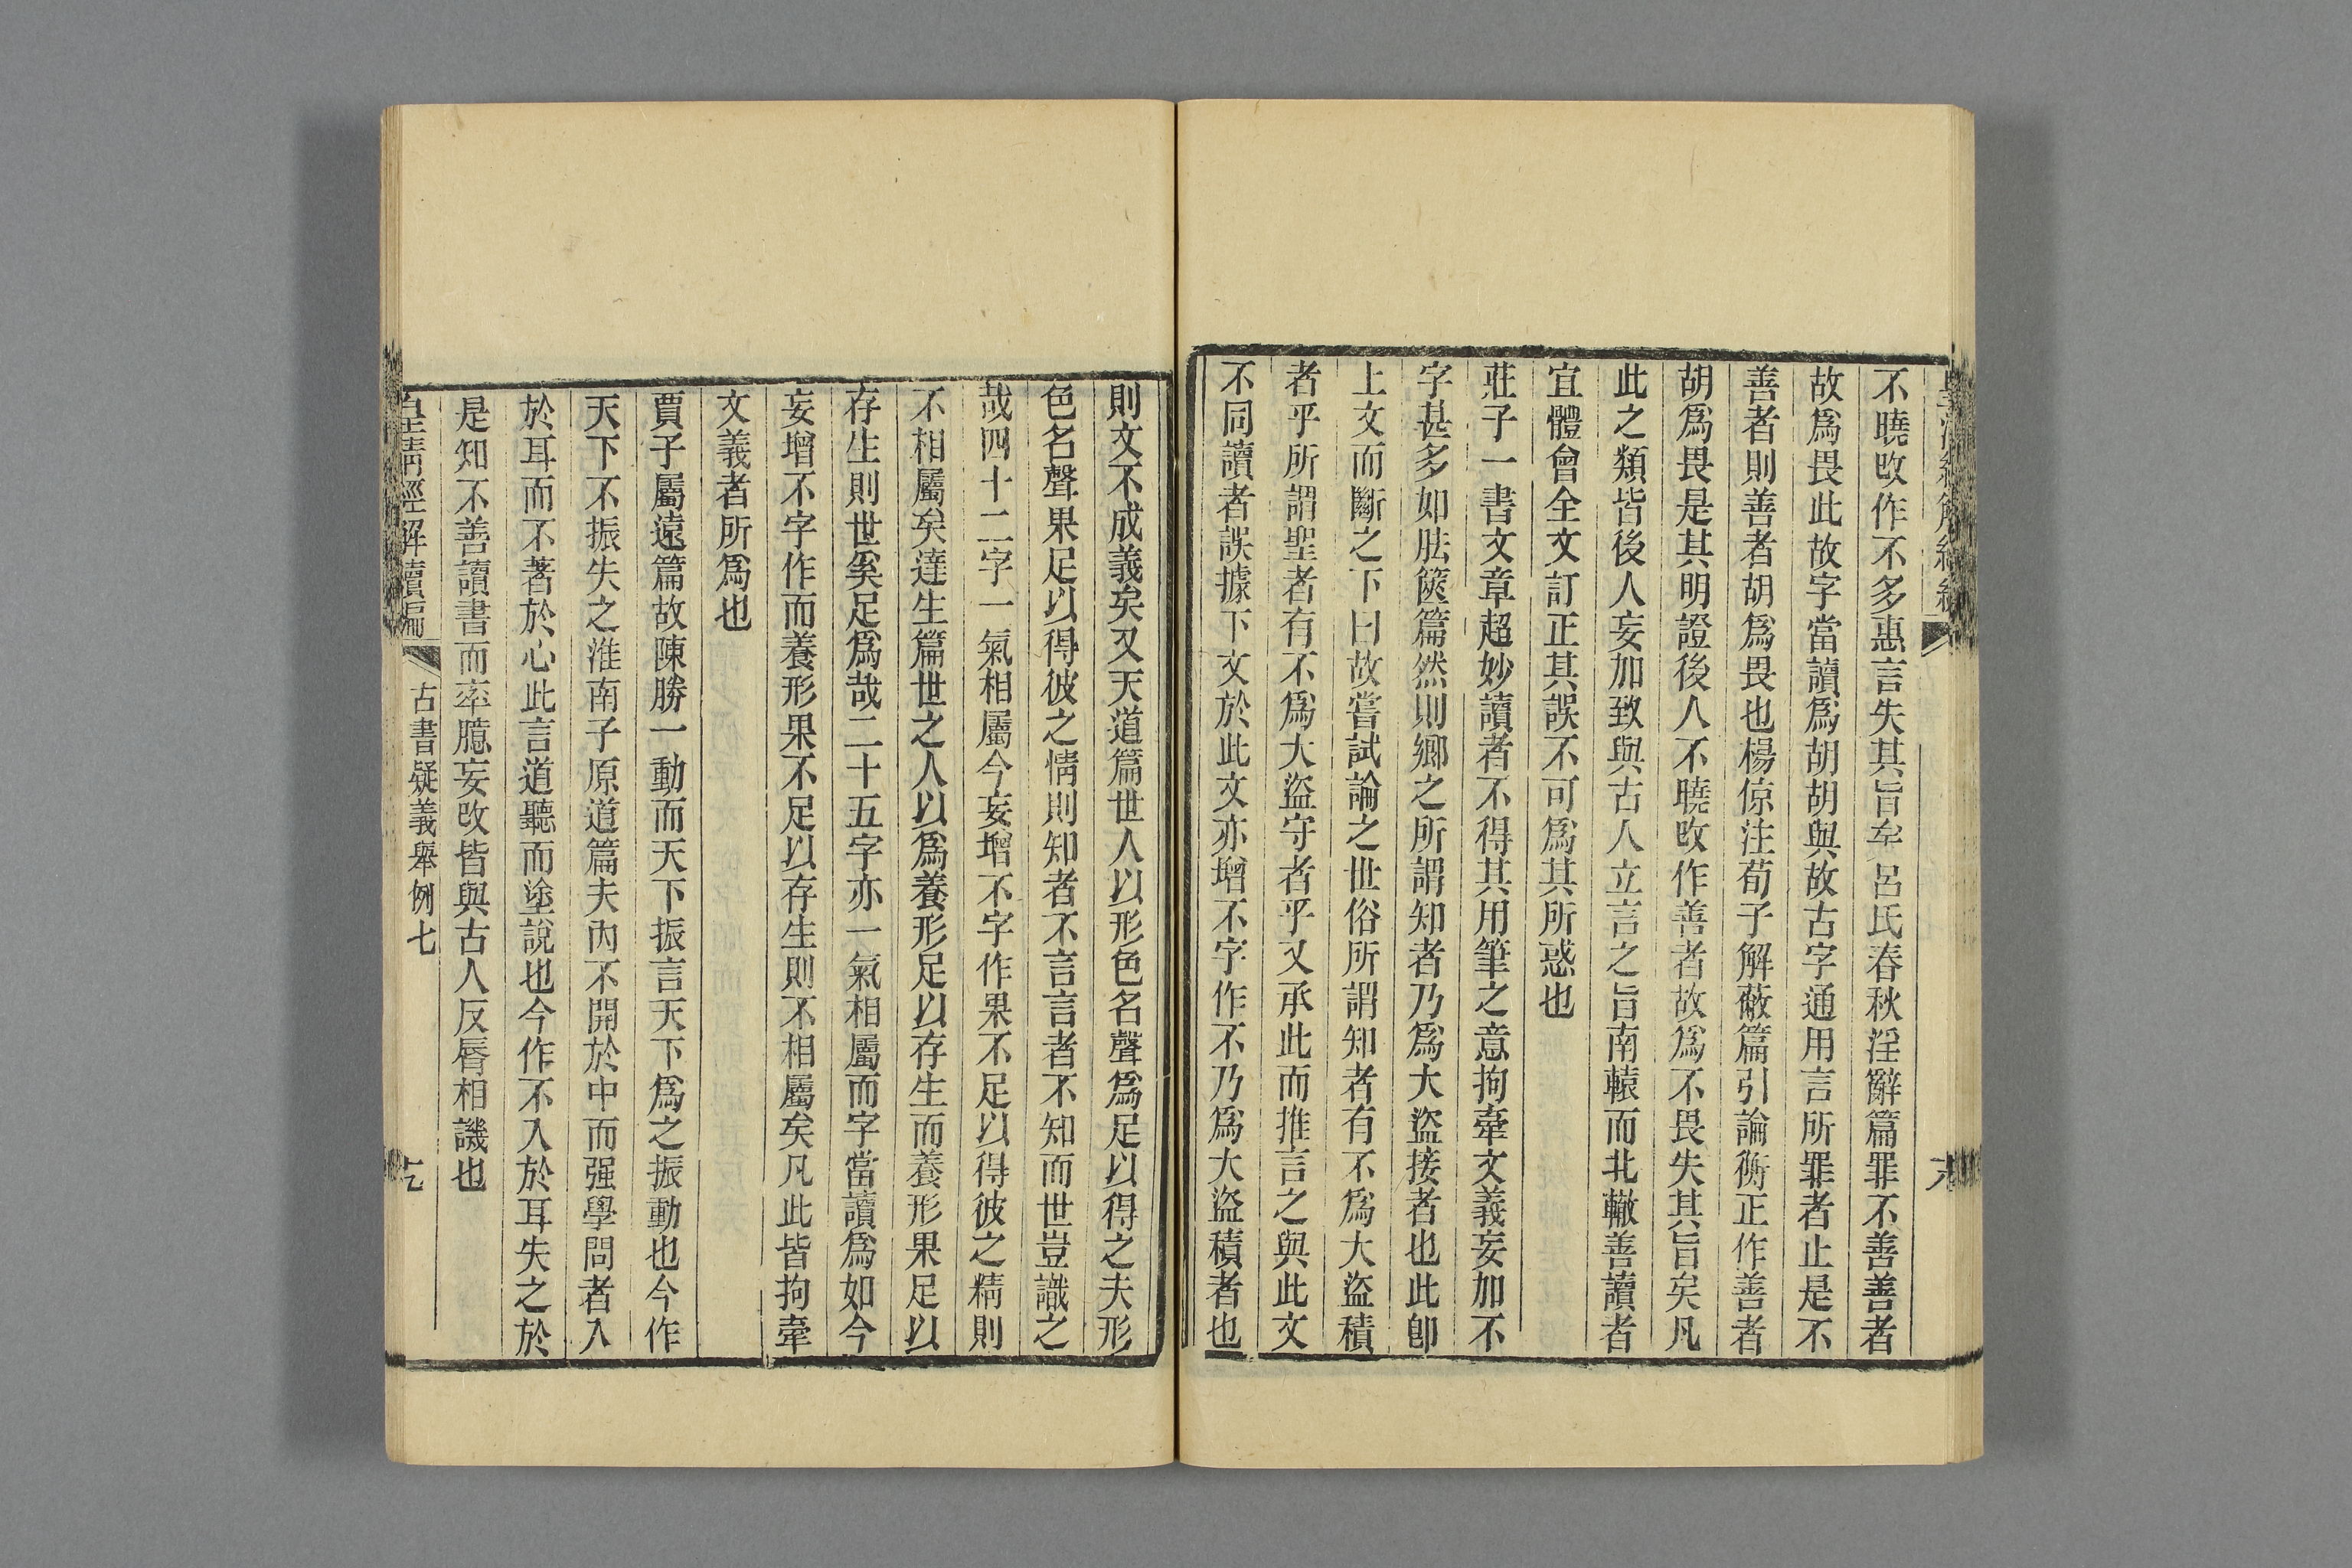 不曉改作不多惠言失其旨矣呂氏春秋淫辭篇罪不善善者
故爲畏此故字當讀爲胡胡與故古字通用言所罪者止是不
善者則善者胡爲畏也楊倞注荀子解蔽篇引論衡正作善者
胡爲畏是其明證後人不曉改作善者故爲不畏失其旨矣凡
此之類皆後人妄加致與古人立言之旨南轅而北轍善讀者
宜體會全文訂正其誤不可爲其所惑也
莊子一書文章超妙讀者不得其用筆之意拘牽文義妄加不
字甚多如胠篋篇然則鄉之所謂知者乃爲大盜接者也此卽
上文而斷之下曰故嘗試論之世俗所謂知者有不爲大盜積
者乎所謂聖者有不爲大盜守者乎又承此而推言之與此文
不同讀者誤據下文於此文亦增不字作不乃爲大盜積者也
則文不成義矣又天道篇世人以形色名聲爲足以得之夫形
色名聲果足以得彼之情則知者不言言者不知而世豈識之
哉四十二字一氣相屬今妄增不字作果不足以得彼之精則
不相屬矣達生篇世之人以爲養形足以存生而養形果足以
存生則世奚足爲哉二十五字亦一氣相屬而字當讀爲如今
妄增不字作而養形果不足以存生則不相屬矣凡此皆拘牽
文義者所爲也
賈子屬遠篇故陳勝一動而天下振言天下爲之振動也今作
天下不振失之淮南子原道篇夫內不開於中而强學問者入
於耳而不著於心此言道聽而塗說也今作不入於耳失之於
是知不善讀書而率臆妄改皆與古人反脣相譏也
皇清經解續編
古書疑義舉例七